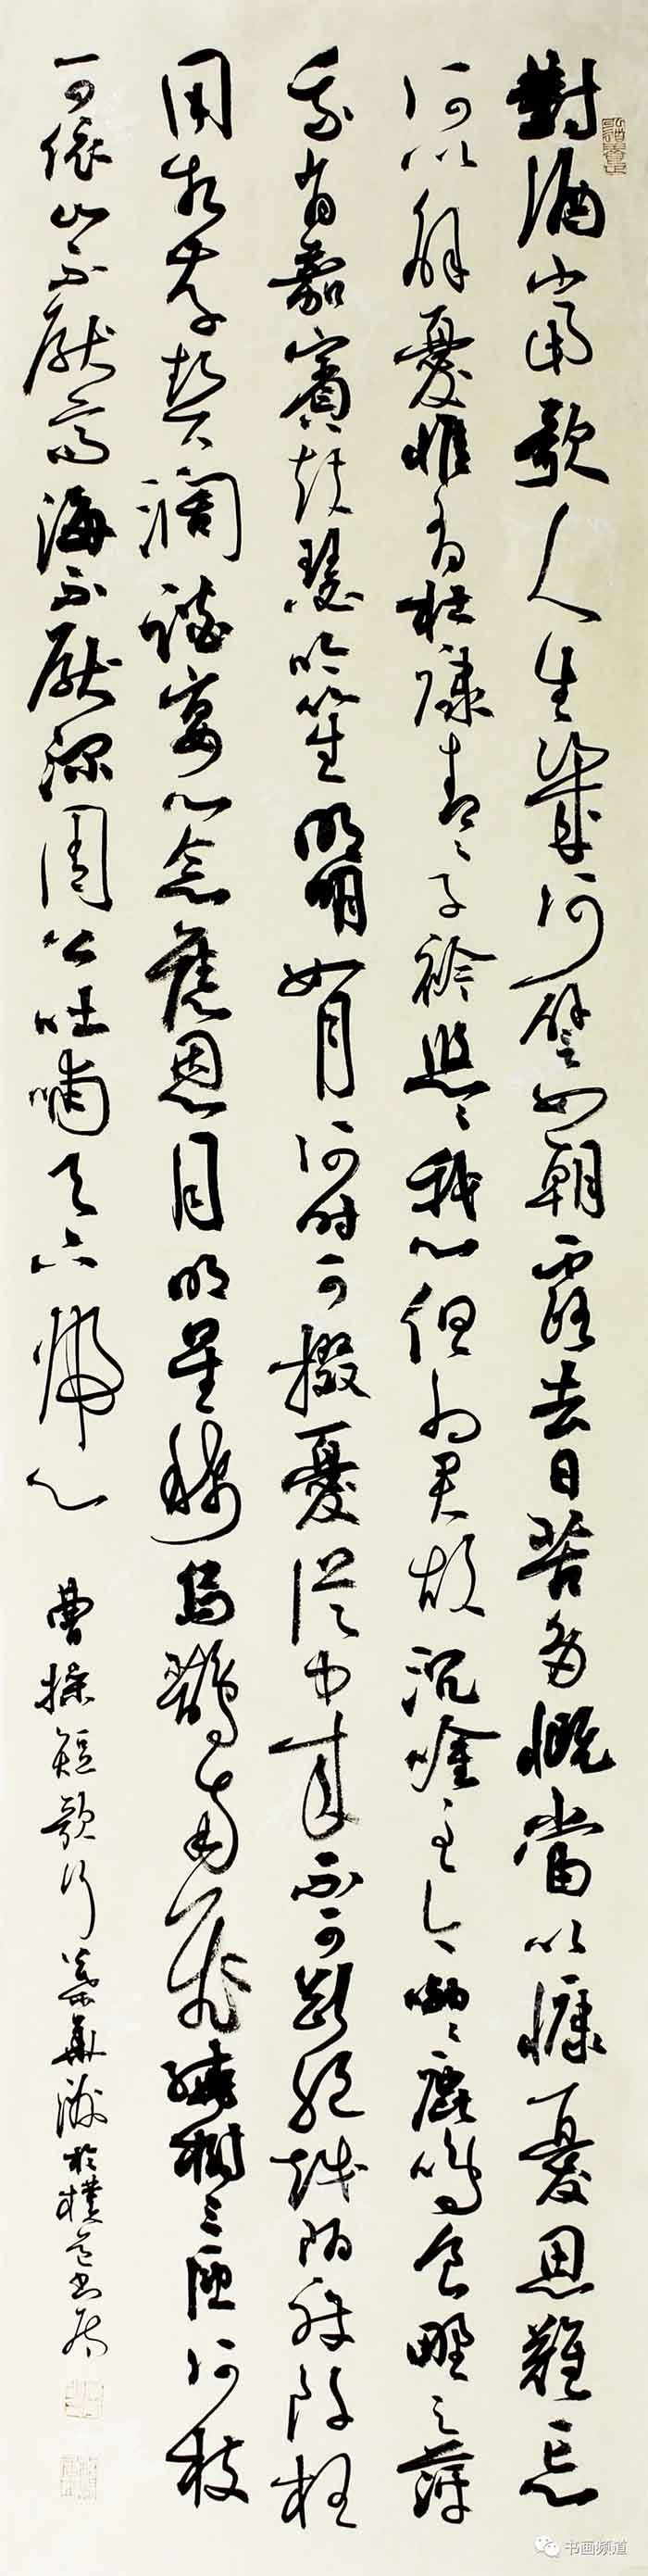 對酒當歌人生幾何譬如朝露去日苦多慨當以慷憂思難忘
何以解憂惟有杜康青々子衿悠々我心但為君故沉吟至今呦々鹿鳴食野之苹
我有嘉賓鼓瑟吹笙明明如月何時可掇憂從中來不可斷絕越陌度阡枉
用相存契闊談宴心念舊恩月明星稀烏鵲南飛繞樹三匝何枝
可依山不厭高海不厭深周公吐哺天下歸心
曹操短歌行 葉 於樸 居
书画频道